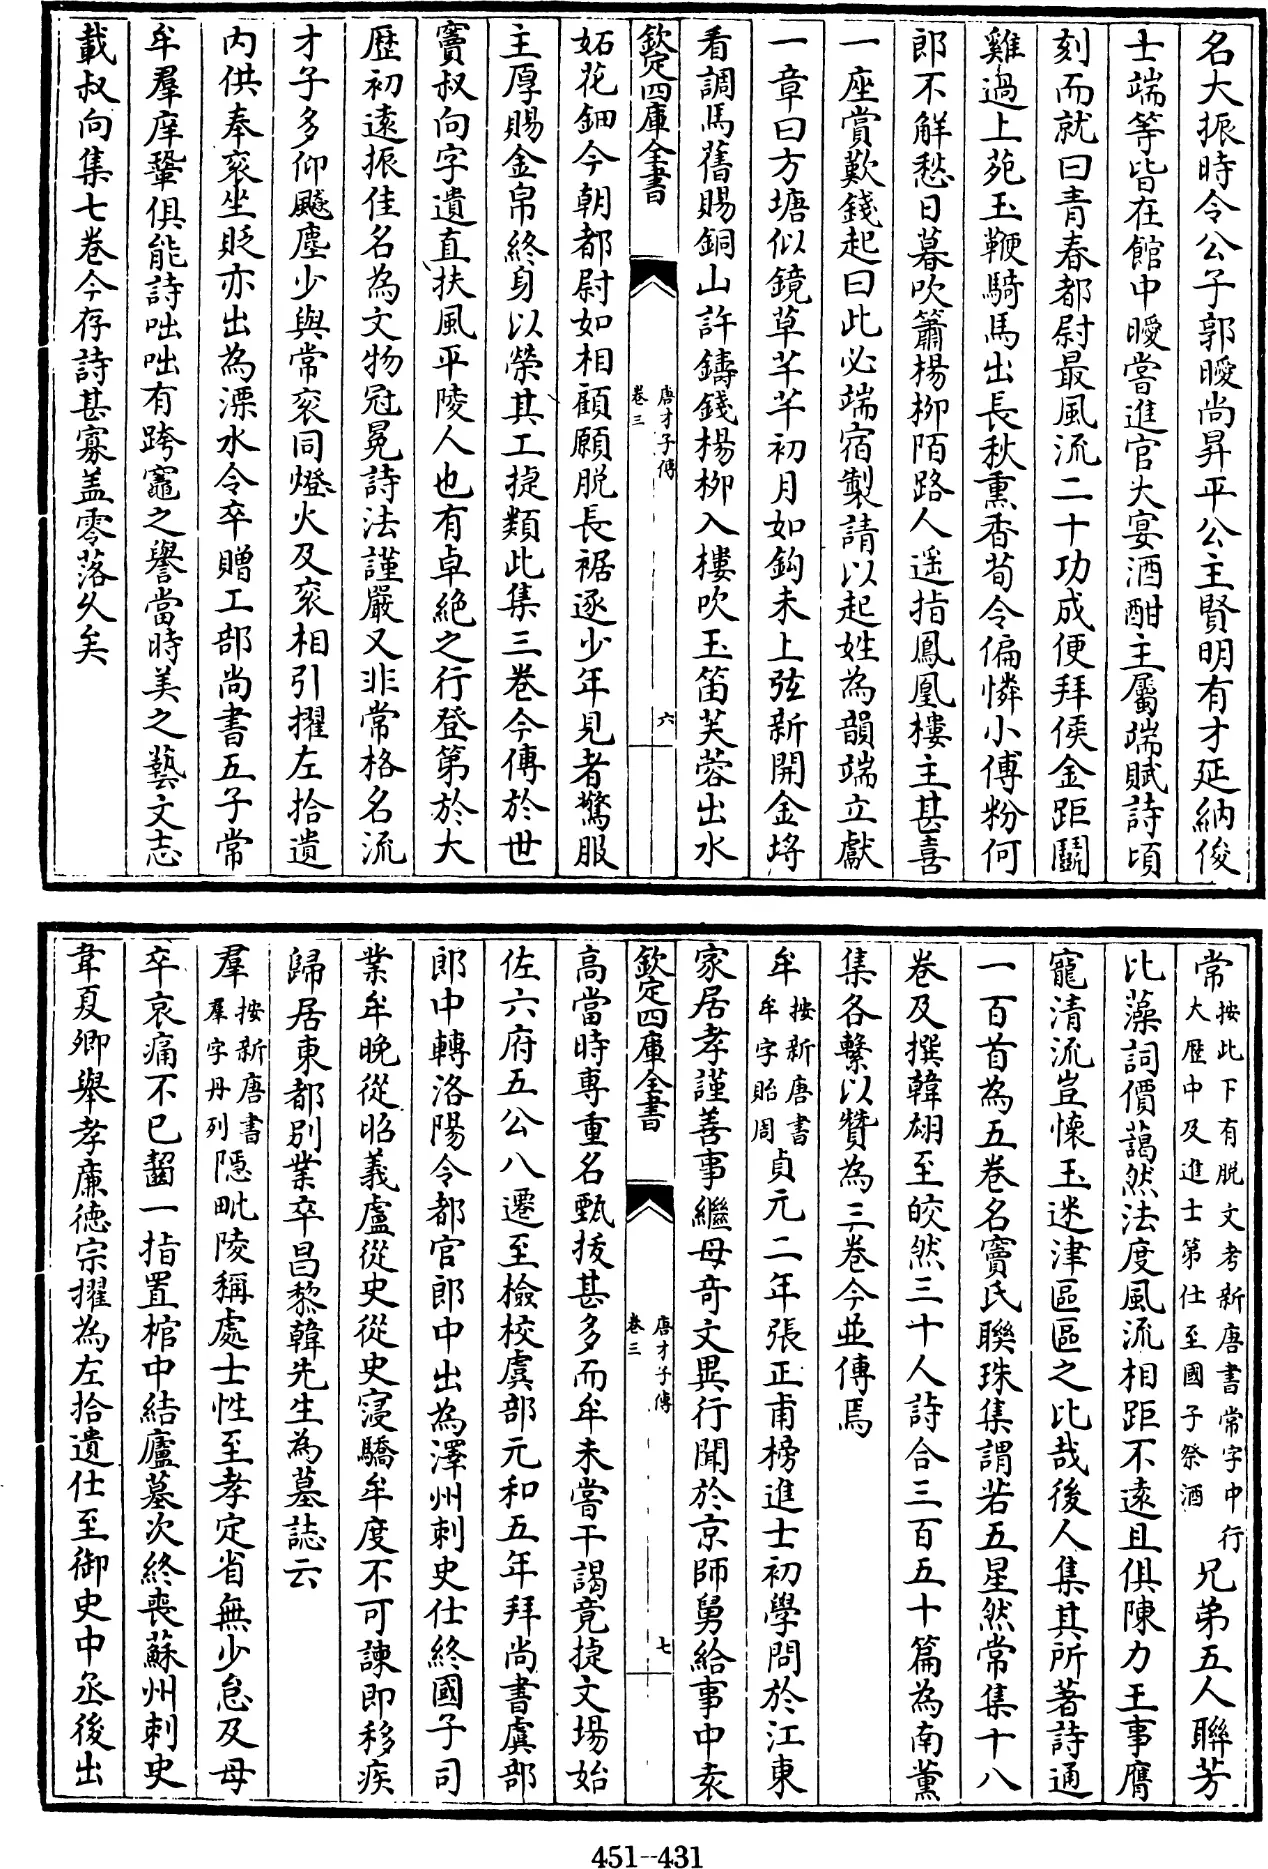 名大振時令公子郭曖尚昇平公主賢明有才延納俊
士端等皆在館中曖嘗進官大宴酒酣主屬端賦詩頃
刻而就曰青春都尉最風流二十功成便拜侯金距鬭
雞過上苑玉鞭騎馬出長秋熏香荀令偏憐小傅粉何
郎不解愁日暮吹簫楊柳陌路人遥指鳳凰樓主甚喜
一座賞歎錢起曰此必端宿製請以起姓為韻端立獻
一章曰方塘似鏡草芊芊初月如鈎未上弦新開金埒
看調馬舊賜銅山許鑄錢楊柳入樓吹玉笛芙蓉出水
欽定四庫全書
唐才子傳
卷三
六
妬花鈿今朝都尉如相顧願脱長裾逐少年見者驚服
主厚賜金帛終身以榮其工捷類此集三卷今傳於世
竇叔向字遺直扶風平陵人也有卓絶之行登第於大
歴初遠振佳名為文物冠冕詩法謹嚴又非常格名流
才子多仰飈塵少與常衮同燈火及衮相引擢左拾遺
内供奉衮坐貶亦出為溧水令卒贈工部尚書五子常
牟羣庠鞏俱能詩咄咄有跨竈之譽當時美之藝文志
載叔向集七卷今存詩甚寡盖零落久矣
常按此下有脱文考新唐書常字中行
大歴中及進士第仕至國子祭酒兄弟五人聯芳
比藻詞價藹然法度風流相距不遠且俱陳力王事膺
寵清流豈懐玉迷津區區之比哉後人集其所著詩通
一百首為五卷名竇氏聯珠集謂若五星然常集十八
卷及撰韓翃至皎然三十人詩合三百五十篇為南薰
集各繫以贊為三卷今並傳焉
牟按新唐書
牟字貽周貞元二年張正甫榜進士初學問於江東
家居孝謹善事繼母奇文異行聞於京師舅給事中袁
欽定四庫全書
唐才子傳
卷三
七
高當時專重名甄拔甚多而牟未嘗干謁竟捷文場始
佐六府五公八遷至檢校虞部元和五年拜尚書虞部
郎中轉洛陽令都官郎中出為澤州刺史仕終國子司
業牟晩從昭義盧從史從史寖驕牟度不可諫即移疾
歸居東都别業卒昌黎韓先生為墓誌云
羣按新唐書
羣字丹列隠毗陵稱處士性至孝定省無少怠及母
卒哀痛不已齧一指置棺中結廬墓次終喪蘇州刺史
韋夏卿舉孝亷徳宗擢為左拾遺仕至御史中丞後出
451--431